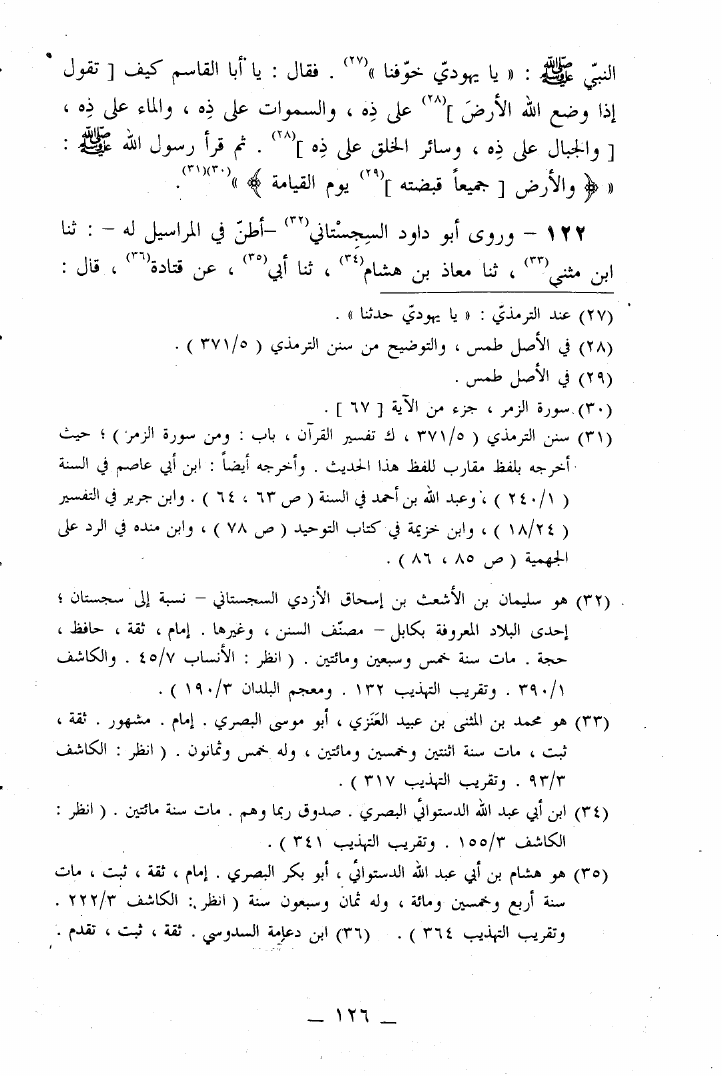 النبيّ ﷺ : « يا يهوديّ خوّفنا »(٢٧) . فقال : يا أبا القاسم كيف [ تقول
إذا وضع الله الأرضَ ](٢٨) على ذِه ، والسموات على ذِه ، والماء على ذِه ،
[ والجبال على ذِه ، وسائر الخلق على ذِه ](٢٨) . ثم قرأ رسول الله ﷺ :
« ﴿ والأرض [ جميعاً قبضته ](٢٩) يوم القيامة ﴾ »(٣٠)(٣١) .
١٢٢ – وروى أبو داود السجِسْتاني(٣٢) –أظنّ في المراسيل له – : ثنا
ابن مثنى(٣٣) ، ثنا معاذ بن هشام(٣٤) ، ثنا أبي(٣٥) ، عن قتادة(٣٦) ، قال :
(٢٧) عند الترمذيّ : « يا يهوديّ حدثنا » .
(٢٨) في الأصل طمس ، والتوضيح من سنن الترمذي ( ٣٧١/٥ ) .
(٢٩) في الأصل طمس .
(٣٠) سورة الزمر ، جزء من الآية [ ٦٧ ] .
(٣١) سنن الترمذي ( ٣٧١/٥ ، ك تفسير القرآن ، باب : ومن سورة الزمر ) ؛ حيث
أخرجه بلفظ مقارب للفظ هذا الحديث . وأخرجه أيضاً : ابن أبي عاصم في السنة
( ٢٤٠/١ ) ، وعبد الله بن أحمد في السنة ( ص ٦٣ ، ٦٤ ) . وابن جرير في التفسير
( ١٨/٢٤ ) ، وابن خزيمة في كتاب التوحيد ( ص ٧٨ ) ، وابن منده في الرد على
الجهمية ( ص ٨٥ ، ٨٦ ) .
(٣٢) هو سليمان بن الأشعث بن إسحاق الأزدي السجستاني – نسبة إلى سجستان ؛
إحدى البلاد المعروفة بكابل – مصنّف السنن ، وغيرها . إمام ، ثقة ، حافظ ،
حجة . مات سنة خمس وسبعين ومائتين . ( انظر : الأنساب ٤٥/٧ . والكاشف
٣٩٠/١ . وتقريب التهذيب ١٣٢ . ومعجم البلدان ١٩٠/٣ ) .
(٣٣) هو محمد بن المثنى بن عبيد العَنَزي ، أبو موسى البصري . إمام . مشهور . ثقة ،
ثبت ، مات سنة اثنتين وخمسين ومائتين ، وله خمس وثمانون . ( انظر : الكاشف
٩٣/٣ . وتقريب التهذيب ٣١٧ ) .
(٣٤) ابن أبي عبد الله الدستوائي البصري . صدوق ربما وهم . مات سنة مائتين . ( انظر :
الكاشف ١٥٥/٣ . وتقريب التهذيب ٣٤١ ) .
(٣٥) هو هشام بن أبي عبد الله الدستوائي ، أبو بكر البصري . إمام ، ثقة ، ثبت ، مات
سنة أربع وخمسين ومائة ، وله ثمان وسبعون سنة ( انظر : الكاشف ٢٢٢/٣ .
وتقريب التهذيب ٣٦٤ ) . (٣٦) ابن دعامة السدوسي . ثقة ، ثبت ، تقدم .
– ١٢٦ –